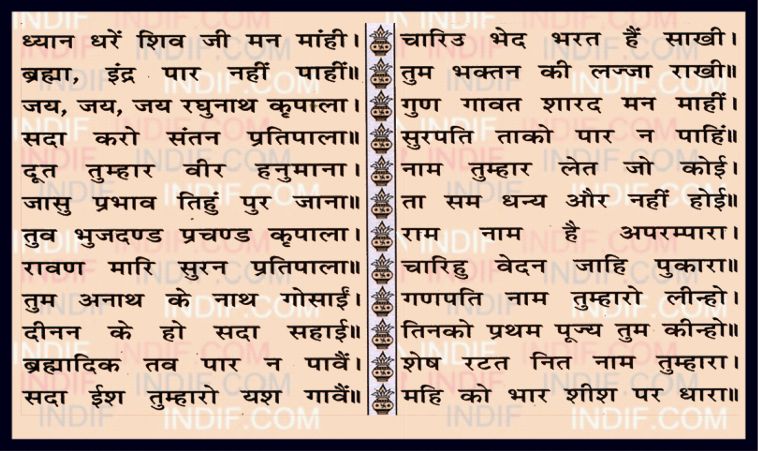 ध्यान धरें शिव जी मन मांही।
ब्रह्मा, इंद्र पार नहीं पाहीं॥
जय, जय, जय रघुनाथ कृपाला।
सदा करो संतन प्रतिपाला॥
दूत तुम्हार वीर हनुमाना।
जासु प्रभाव तिहुं पुर जाना॥
तुव भुजदण्ड प्रचण्ड कृपाला।
रावण मारि सुरन प्रतिपाला॥
तुम अनाथ के नाथ गोसाईं।
दीनन के हो सदा सहाई॥
ब्रह्मादिक तव पार न पावैं।
सदा ईश तुम्हारो यश गावैं॥
चारिउ भेद भरत हैं साखी।
तुम भक्तन की लज्जा राखी॥
गुण गावत शारद मन माहीं।
सुरपति ताको पार न पाहिं॥
नाम तुम्हार लेत जो कोई।
ता सम धन्य और नहीं होई॥
राम नाम है अपरम्पारा।
चारिहु वेदन जाहि पुकारा॥
गणपति नाम तुम्हारो लीन्हो।
तिनको प्रथम पूज्य तुम कीन्हो॥
शेष रटत नित नाम तुम्हारा।
महि को भार शीश पर धारा॥
INDIF.COM